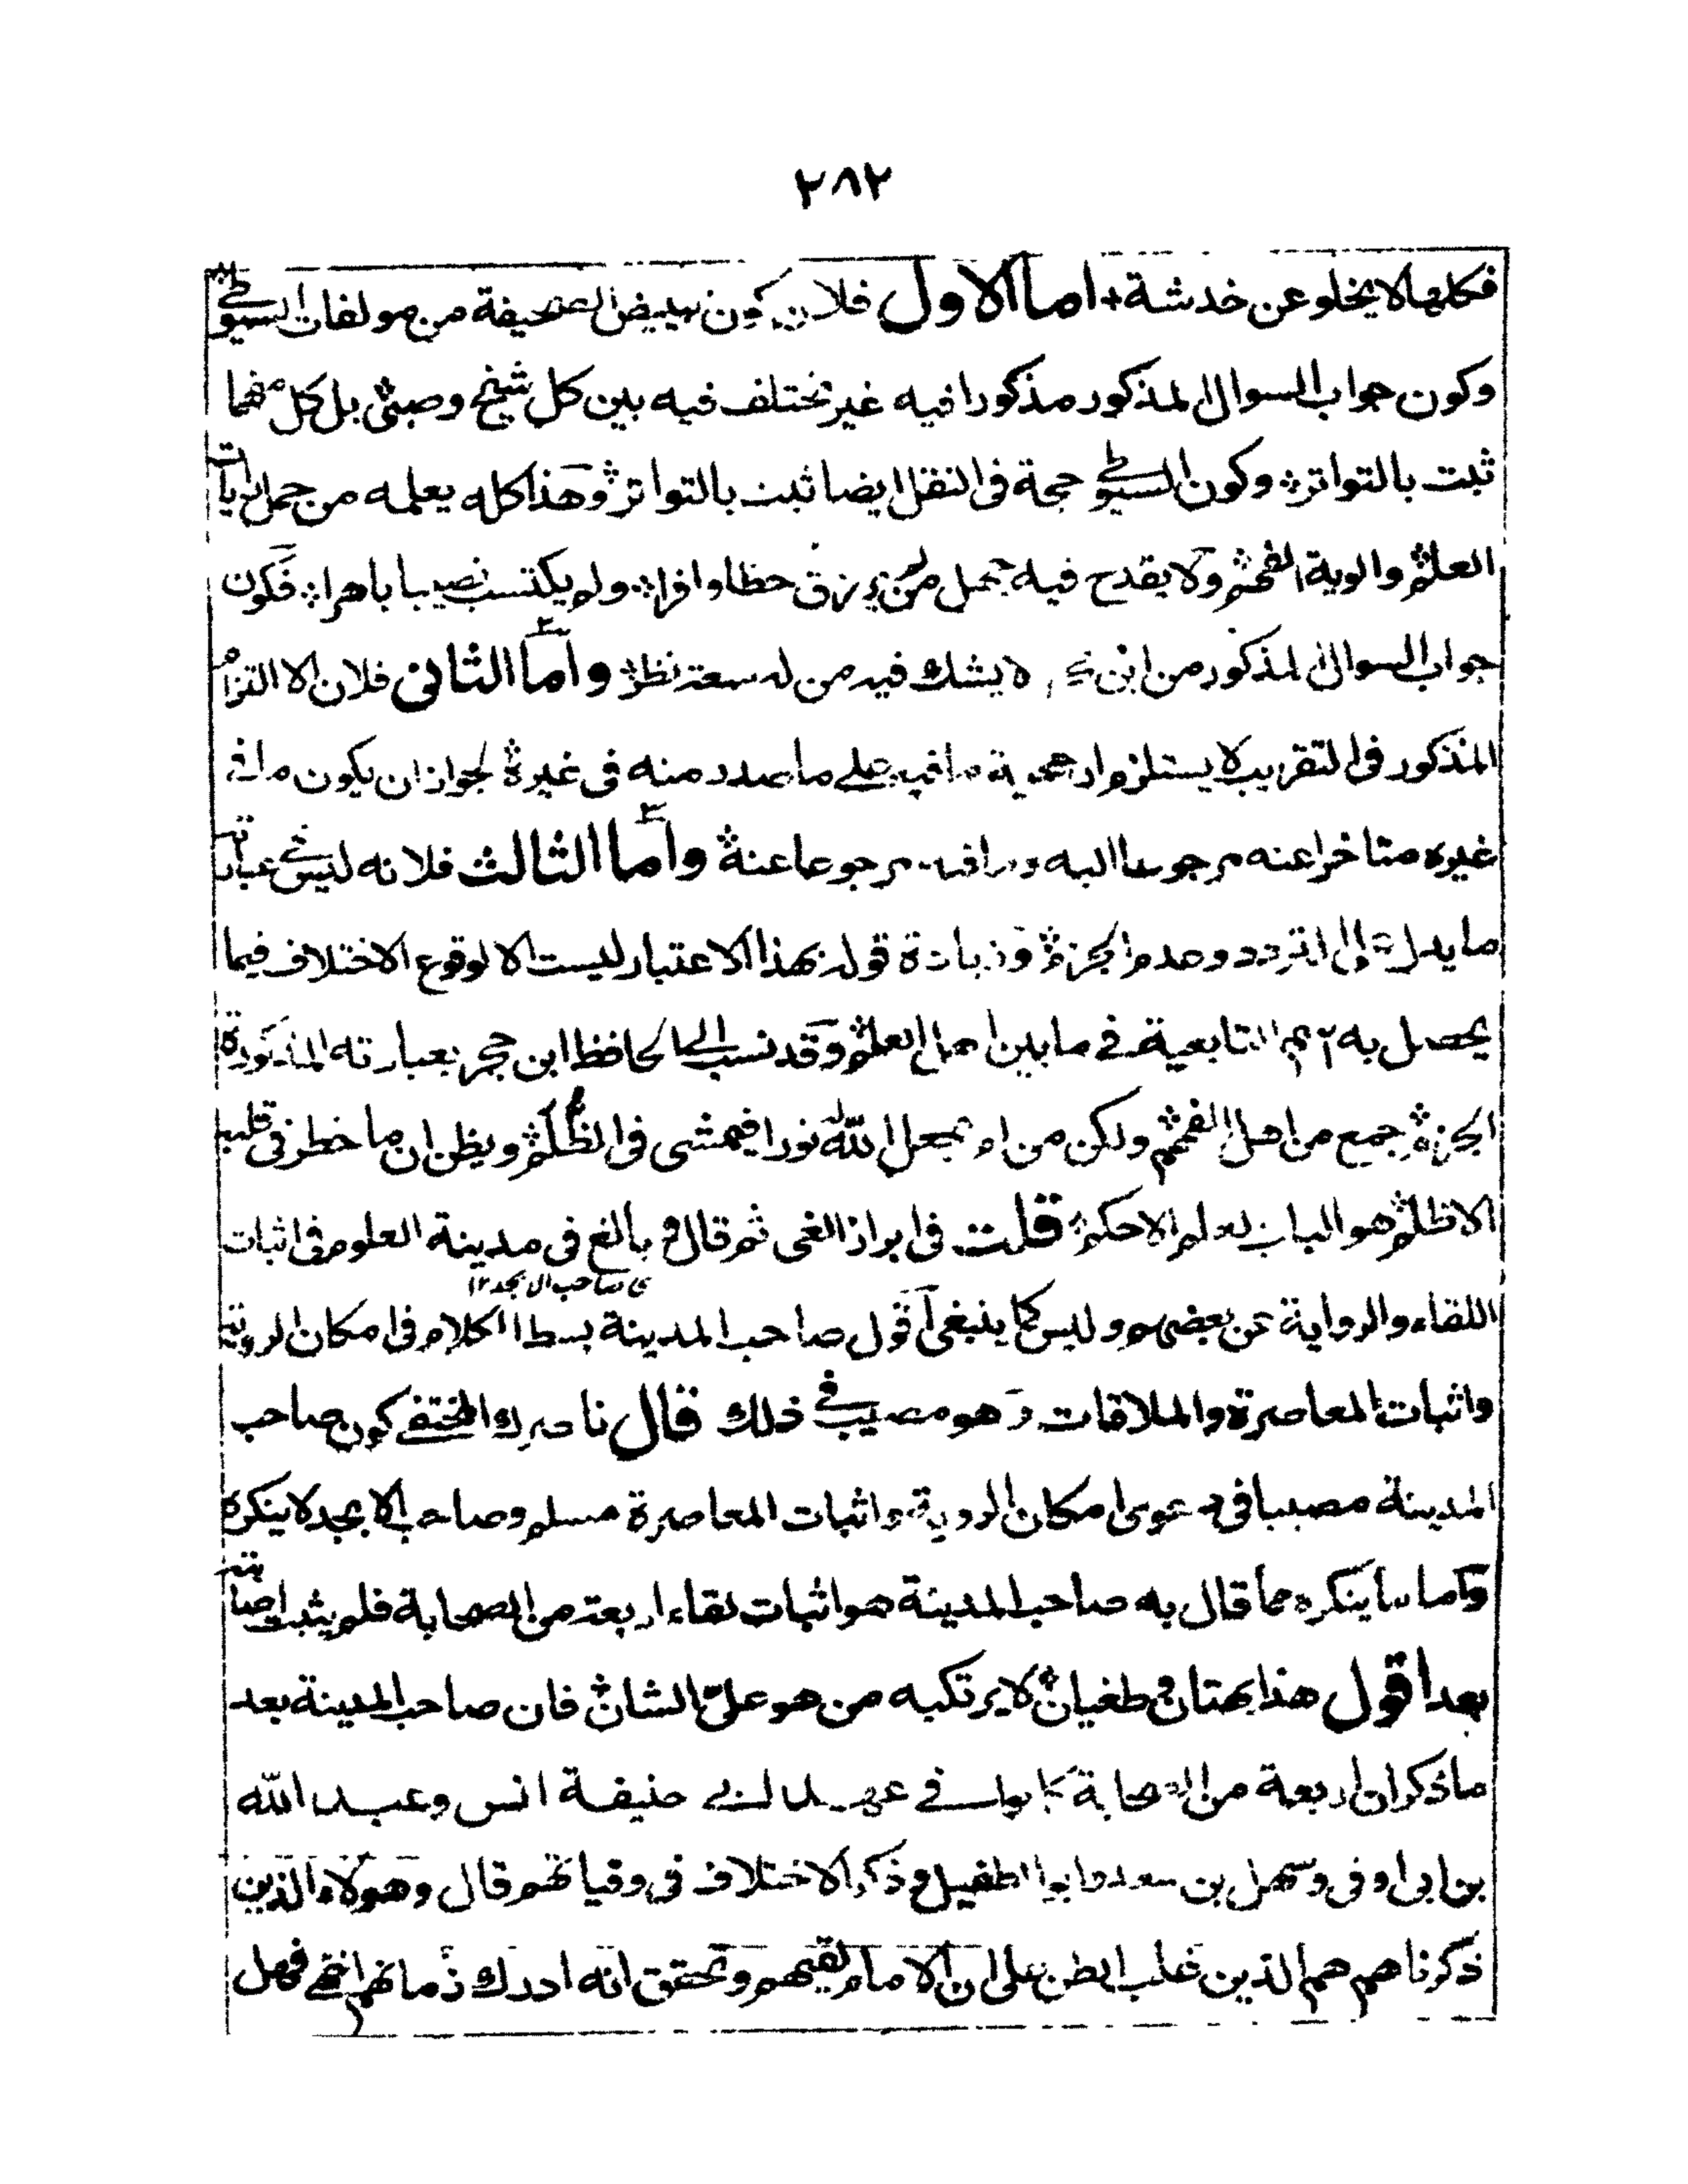 ٢٨٢
فكلها لا يخلو عن خدشة اما الاول فلان كون تبييض الصحيفة من مولفات السيوطي
وكون جواب السوال المذكور مذكورا فيه غير مختلف فيه بين كل شيخ وصبي بل كل منهما
ثبت بالتواتر وكون السيوطي حجة في النقل ايضا ثبت بالتواتر وهذا كله يعلمه من حمل رايات
العلم والوية الفهم ولا يقدح فيه جهل من لم يرزق حظا وافرا ولم يكتسب نصيبا باهرا فكون
جواب السوال المذكور من ابن حجر لا يشك فيه من له سعة نظر واما الثاني فلان الالتزام
المذكور في التقريب لا يستلزم ارجحية ما فيه على ما صدر منه في غيره لجواز ان يكون ما في
غيره متاخرا عنه مرجوعا اليه وما فيه مرجوعا عنه واما الثالث فلانه ليس في عبارته
ما يدل على التردد وعدم الجزم وزيادة قوله بهذا الاعتبار ليست الا لوقوع الاختلاف فيما
يحصل به اسم التابعية في ما بين اهل العلم وقد نسب الى الحافظ ابن حجر بعبارته المذكورة
الجزم جمع من اهل الفهم ولكن من لم يجعل الله له نورا فيمشي في الظلم ويظن ان ما خطر في قلبه
الاظلم هو الباب لعلم الاحكم قلت في ابراز الغى ثم قال وبالغ في مدينة العلوم في اثبات
اى صاحب الابجد ١٢
اللقاء والرواية عن بعضهم وليس كما ينبغي اقول صاحب المدينة بسط الكلام في امكان الروية
واثبات المعاصرة والملاقات وهو مصيب في ذلك قال ناصرك المختفي كون صاحب
المدينة مصيبا في دعوى امكان الروية واثبات المعاصرة مسلم وصاحب الابجد لا ينكره
واما ما ينكره مما قال به صاحب المدينة هو اثبات لقاء اربعة من الصحابة فلم يثبت اصابته
بعد اقول هذا بهتان وطغيان لا يرتكبه من هو على الشان فان صاحب المدينة بعد
ما ذكر ان اربعة من الصحابة كانوا في عهد ابي حنيفة انس وعبد الله
بن ابي اوفى وسهل بن سعد وابو الطفيل وذكر الاختلاف في وفياتهم قال وهولاء الذين
ذكرناهم هم الذين غلب الظن على ان الامام لقيهم وتحقق انه ادرك زمانهم انتهى فهل